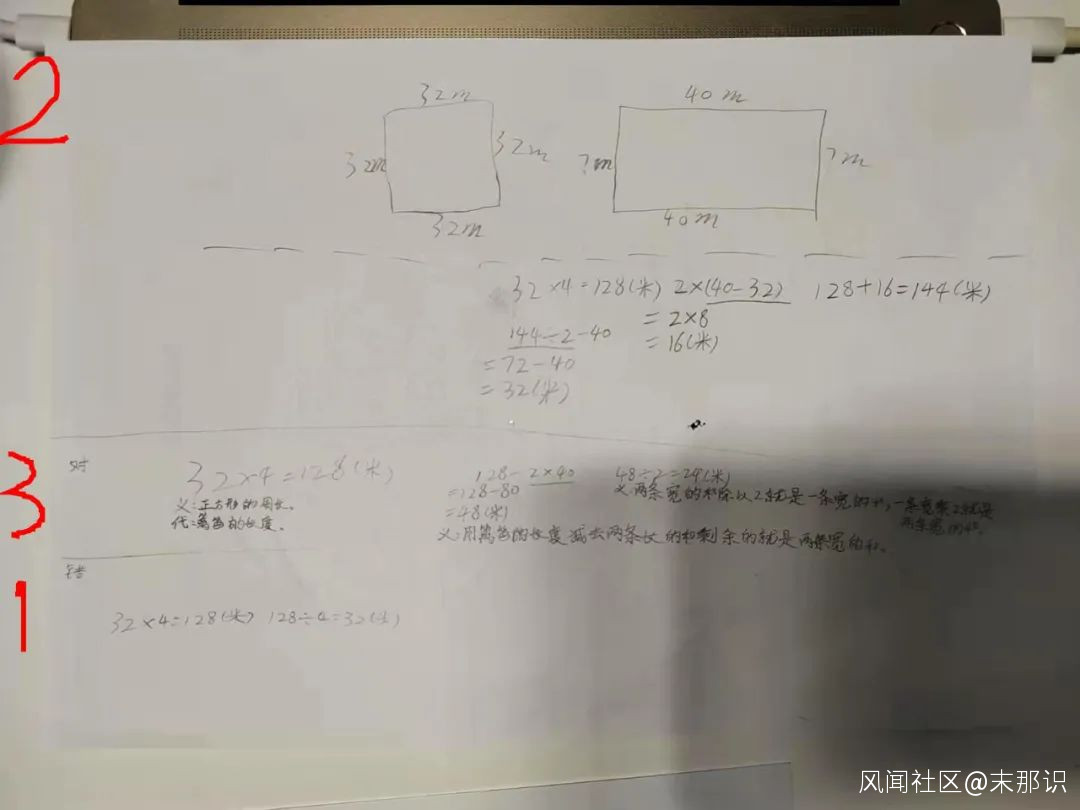 2
32m
40m
32m
32m
?m
?m
32m
40m
32×4=128(米) 2×(40-32) 128+16=144(米)
=2×8
=16(米)
144÷2-40
=72-40
=32(米)
3
对
32×4=128(米) 128-2×40 48÷2=24(米)
=128-80
=48(米)
义:正方形的周长。
代:篱笆的长度。
义:两条宽的和除以2就是一条宽的和,一条宽乘2就是两条宽的和。
义:用篱笆的长度减去两条长的和剩余的就是两条宽的和。
1
32×4=128(米) 128÷4=32(米)
风闻社区@末那识